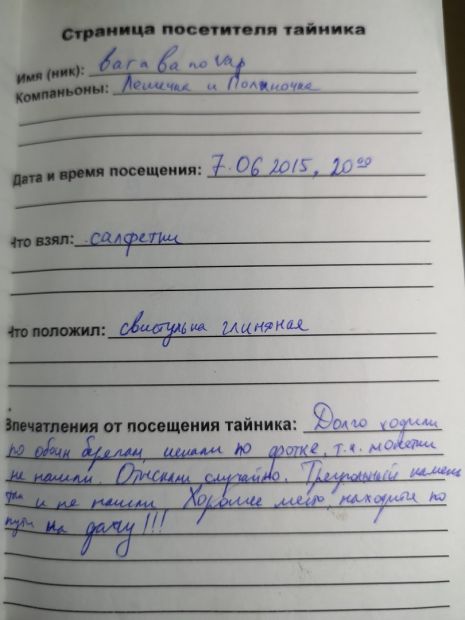 Страница посетителя тайника
Имя (ник): вага ва по var
Компаньоны: Лешечка и Полиночка
Дата и время посещения: 7.06 2015, 20⁰⁰
Что взял: салфетки
Что положил: свистулька глиняная
Впечатления от посещения тайника: Долго ходили
по обоим берегам, искали по фотке, т.к. монетки
не нашли. Отыскали случайно. Треугольный камень
так и не нашли. Хорошее место, находится по
пути на дачу!!!